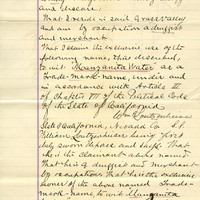 and disease;
That I reside in said Grass Valley
and am by occupation a druggist
and merchant.
That I claim the exclusive use of the
following name, thus described,
to wit: Manzanita Water as a
Trade-mark-name, under and
in accordance with Article III
of Chapter III of the Political Code
of the State of California.
Wm Loutzenheiser
State of California, Nevada Co. SS.
William Loutzenheiser being first
duly sworn deposes and says: That
he is the claimant above named
That he is a druggist and merchant
by occupation that he is the exclusive
owner of the above named Trade-
mark-name, to wit: Manzanita